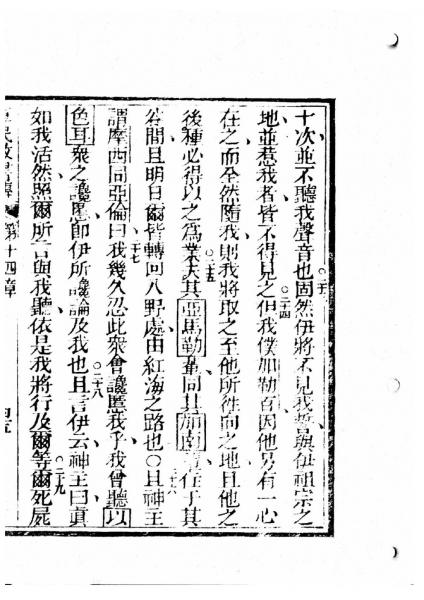 十次並不聽我聲音也○二十三固然伊將不見我誓與伊祖宗之
地並惹我者皆不得見之○二十四但我僕加勒百因他另有一心
在之而全然隨我則我將取之至他所徃向之地且他之
後種必得以之為業○二十五夫其亞馬勒輩同其加南輩住于其
谷間且明日爾皆轉回入野處由紅海之路也○二十六且神主
謂摩西同亞倫曰○二十七我幾久忍此衆會讒慝我乎我曾聽以
色耳衆之讒慝即伊所讒論及我也○二十八且言伊云神主曰真
如我活然照爾所言與我聽依是我將行及爾等○二十九爾死屍
民數書傳 第十四章